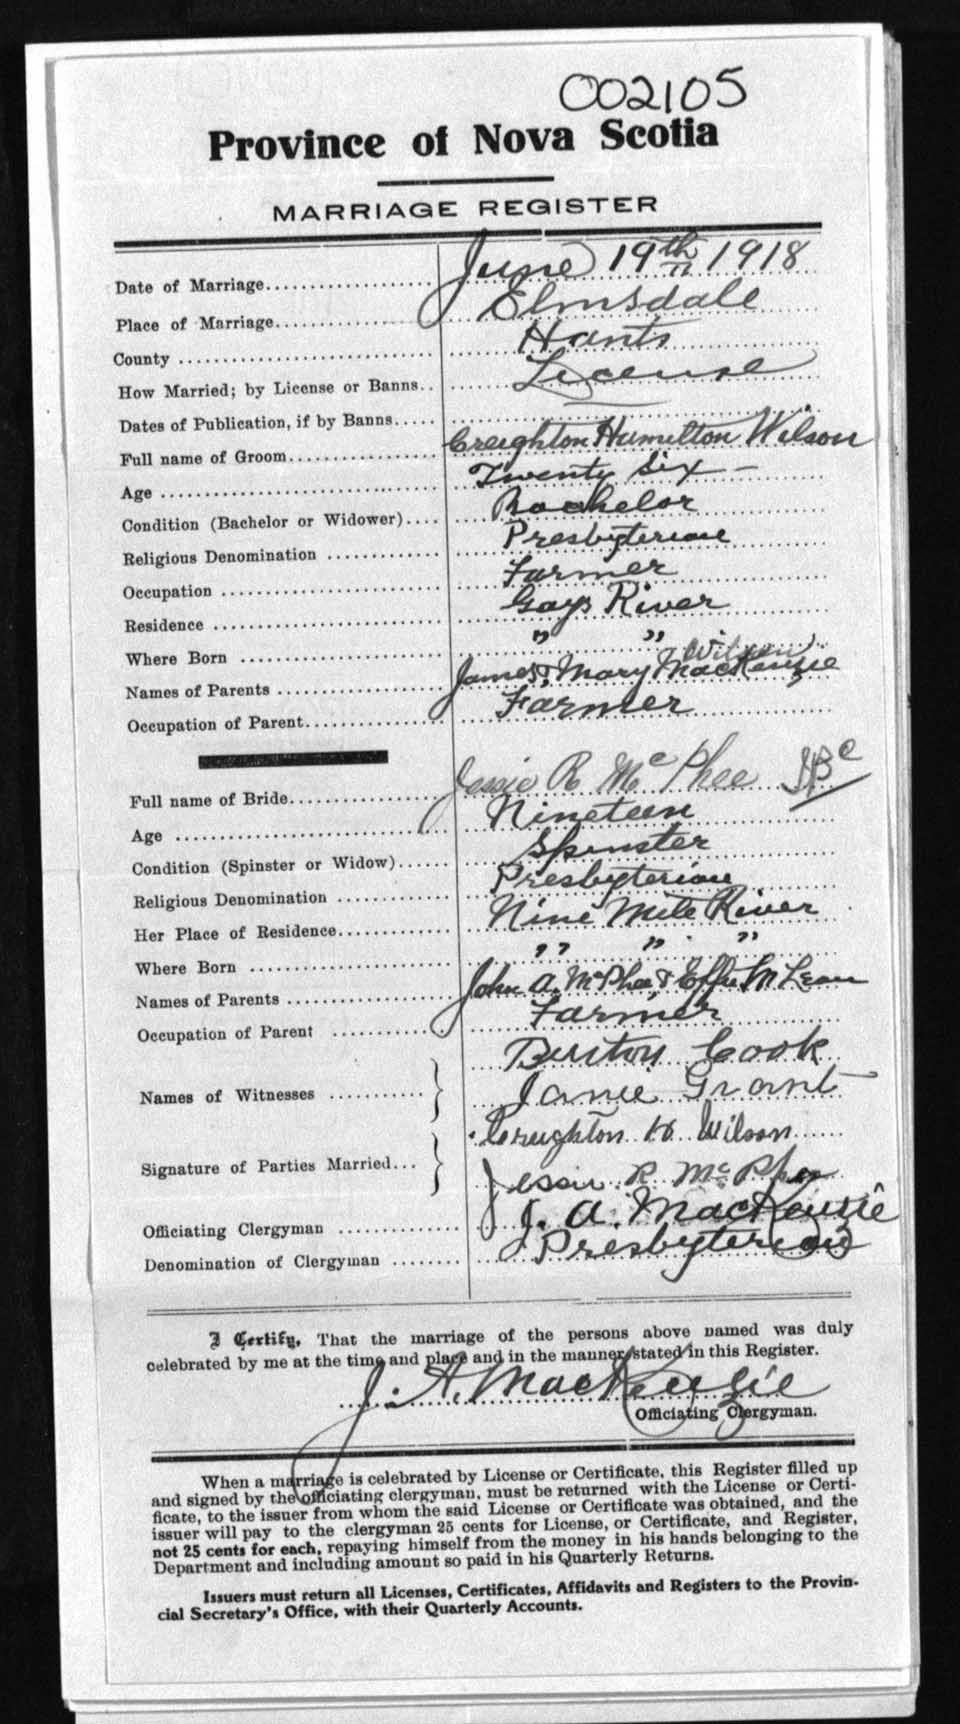 002105
Province of Nova Scotia
MARRIAGE REGISTER
Date of Marriage June 19th 1918
Place of Marriage Elmsdale
County Hants
How Married; by License or Banns License
Dates of Publication, if by Banns
Full name of Groom Creighton Hamilton Wilson
Age Twenty Six
Condition (Bachelor or Widower) Bachelor
Religious Denomination Presbyterian
Occupation Farmer
Residence Gays River
Where Born " "
Names of Parents James & Mary MacKenzie Wilson
Occupation of Parent Farmer
Full name of Bride Jessie R McPhee
Age Nineteen
Condition (Spinster or Widow) Spinster
Religious Denomination Presbyterian
Her Place of Residence Nine Mile River
Where Born " " "
Names of Parents John A. McPhee & Effie McLean
Occupation of Parent Farmer
Names of Witnesses Burton Cook
Janie Grant
Signature of Parties Married Creighton H. Wilson
Jessie R. McPhee
Officiating Clergyman J. A. MacKenzie
Denomination of Clergyman Presbyterian
I Certify, That the marriage of the persons above named was duly
celebrated by me at the time and place and in the manner stated in this Register.
J. A. MacKenzie
Officiating Clergyman.
When a marriage is celebrated by License or Certificate, this Register filled up
and signed by the officiating clergyman, must be returned with the License or Certi-
ficate, to the issuer from whom the said License or Certificate was obtained, and the
issuer will pay to the clergyman 25 cents for License, or Certificate, and Register,
not 25 cents for each, repaying himself from the money in his hands belonging to the
Department and including amount so paid in his Quarterly Returns.
Issuers must return all Licenses, Certificates, Affidavits and Registers to the Provin-
cial Secretary's Office, with their Quarterly Accounts.